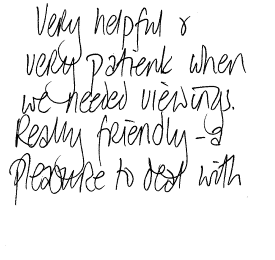 Very helpful &
very patient when
we needed viewings.
Really friendly - a
pleasure to deal with